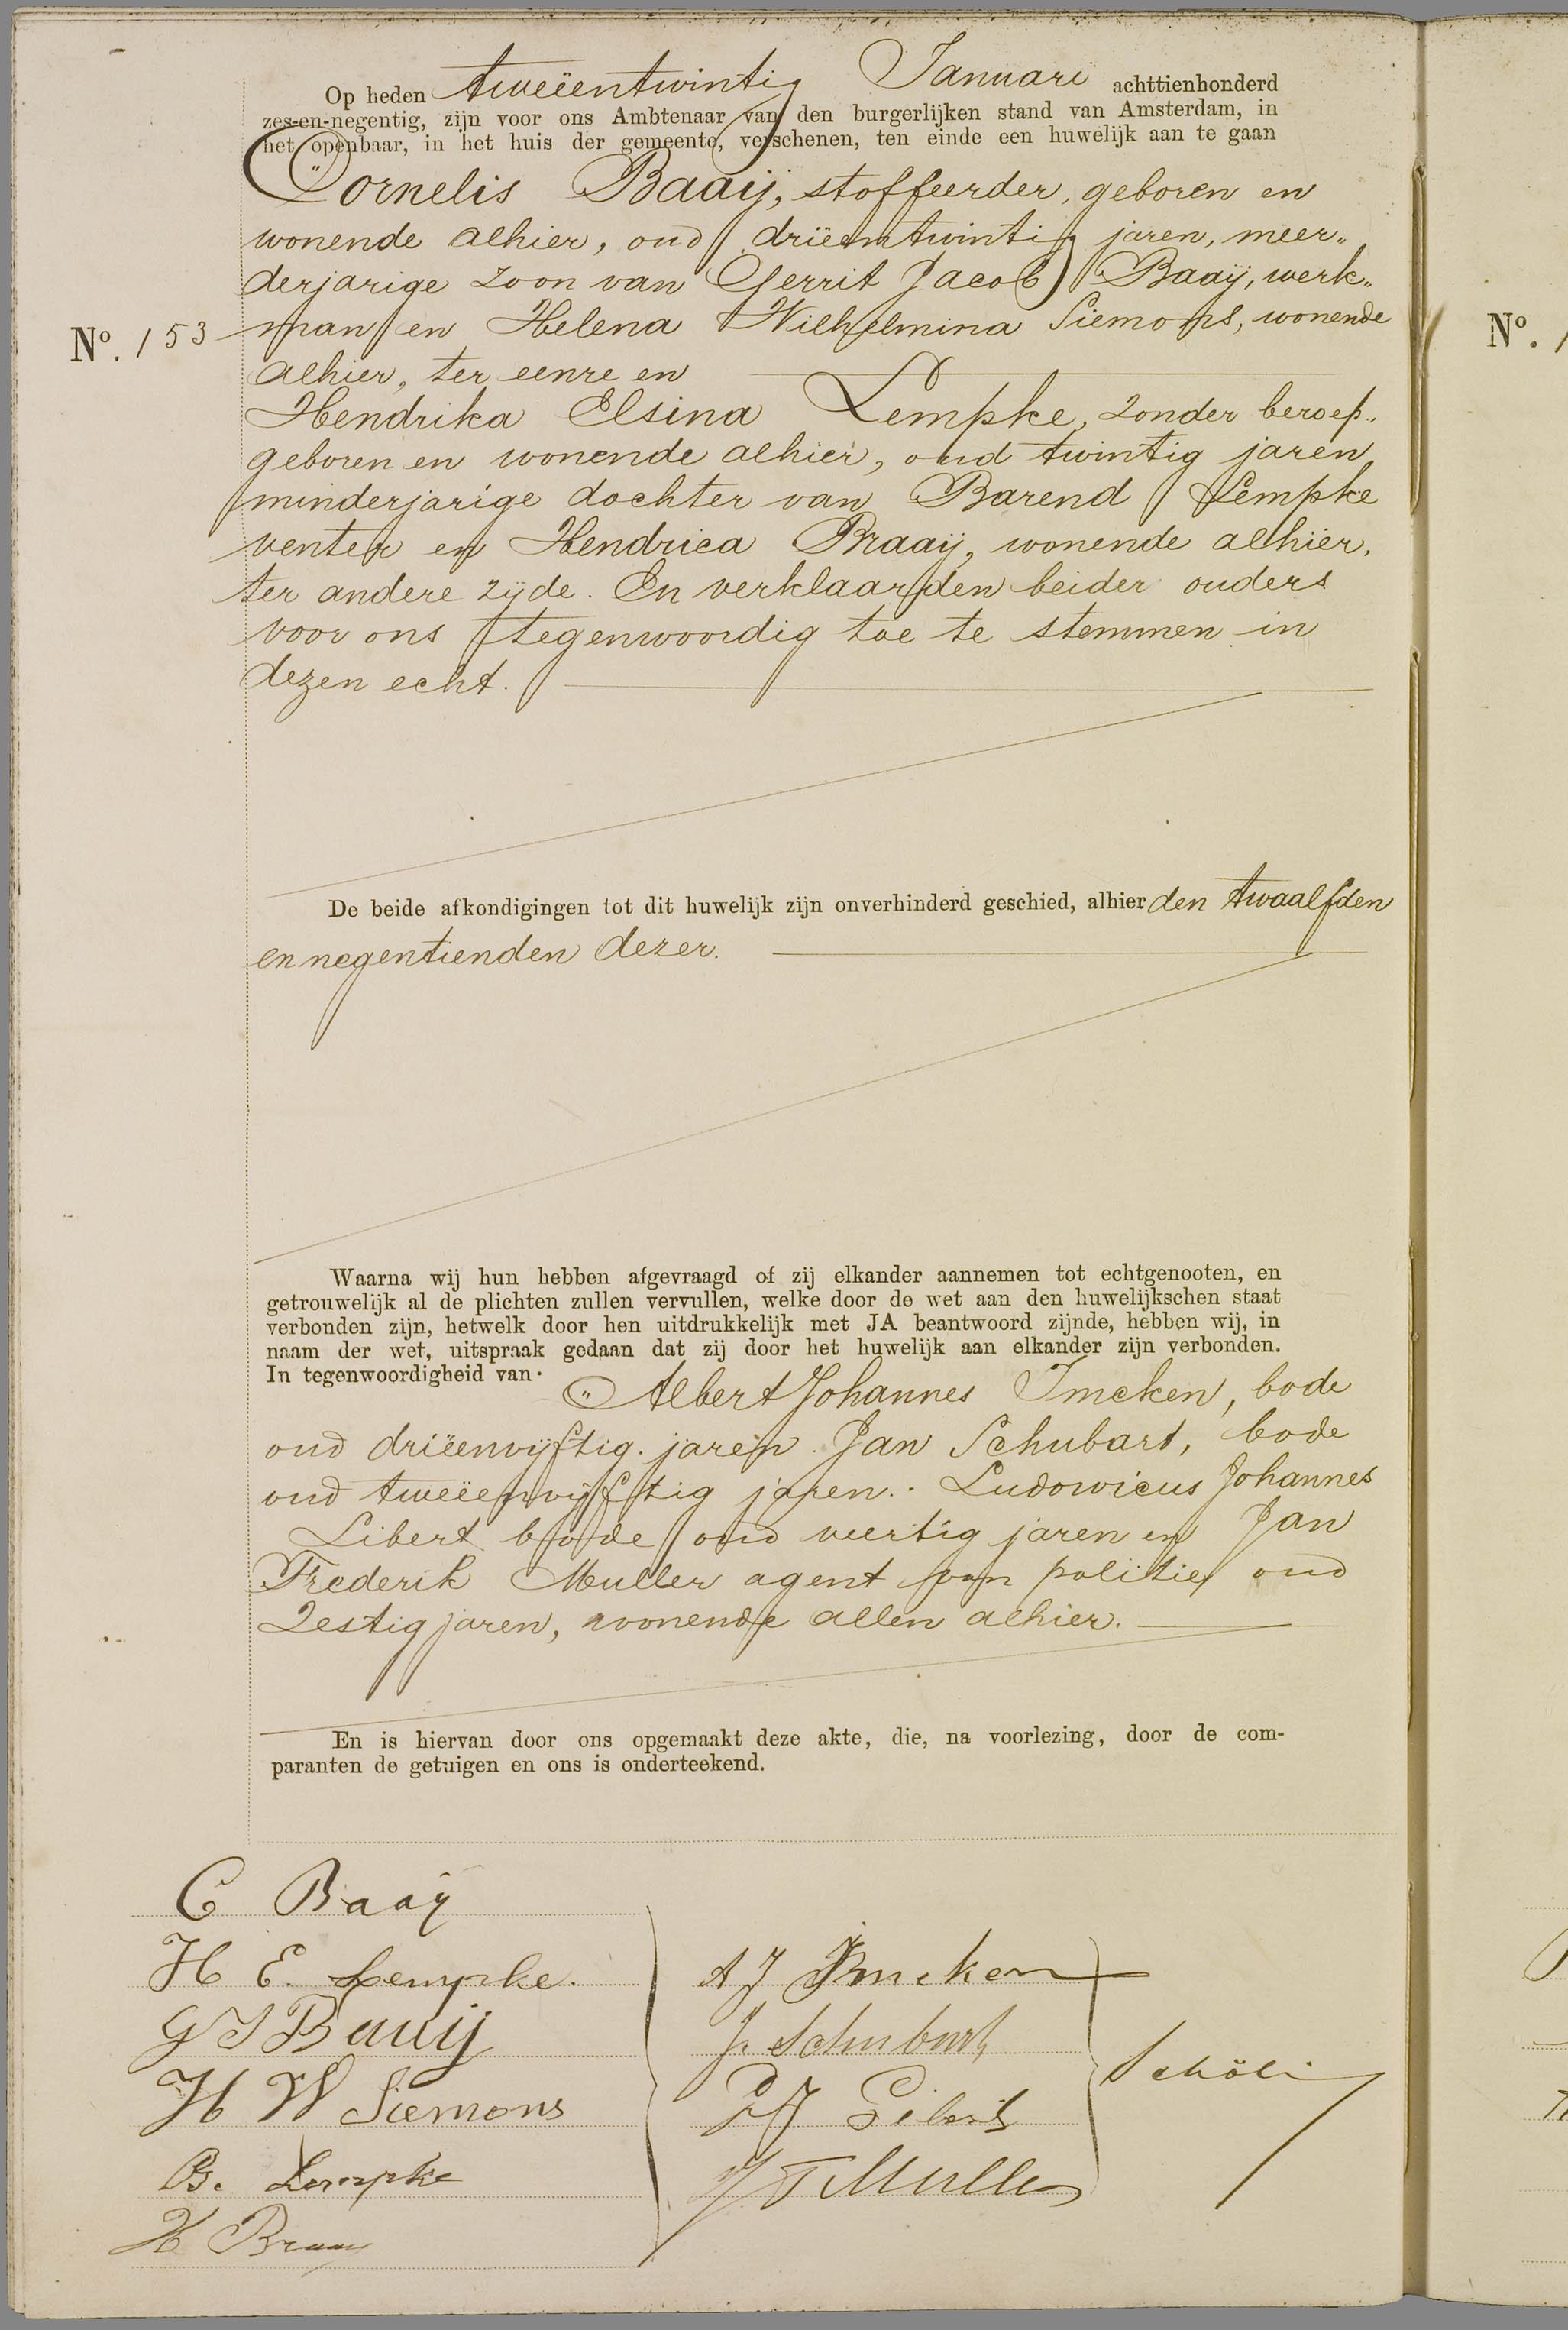 Op heden tweeëntwintig Januari achttienhonderd
zes-en-negentig, zijn voor ons Ambtenaar van den burgerlijken stand van Amsterdam, in
het openbaar, in het huis der gemeente, verschenen, ten einde een huwelijk aan te gaan
Cornelis Baaij, stoffeerder, geboren en
wonende alhier, oud drieëntwintig jaren, meer„
derjarige zoon van Gerrit Jacob Baaij, werk„
Nº. 153 man en Helena Wilhelmina Siemons, wonende
alhier, ter eenre en
Hendrika Elsina Lempke, zonder beroep,
geboren en wonende alhier, oud twintig jaren,
minderjarige dochter van Barend Lempke
venter en Hendrica Braaij, wonende alhier,
ter andere zijde. En verklaarden beider ouders
voor ons tegenwoordig toe te stemmen in
dezen echt.
De beide afkondigingen tot dit huwelijk zijn onverhinderd geschied, alhier den twaalfden
en negentienden dezer.
Waarna wij hun hebben afgevraagd of zij elkander aannemen tot echtgenooten, en
getrouwelijk al de plichten zullen vervullen, welke door de wet aan den huwelijkschen staat
verbonden zijn, hetwelk door hen uitdrukkelijk met JA beantwoord zijnde, hebben wij, in
naam der wet, uitspraak gedaan dat zij door het huwelijk aan elkander zijn verbonden.
In tegenwoordigheid van Albert Johannes Imcken, bode
oud drieënvijftig jaren. Jan Schubart, bode
oud tweeënvijftig jaren. Ludowicus Johannes
Libert bode oud veertig jaren en Jan
Frederik Muller agent van politie oud
Zestig jaren, wonende allen alhier.
En is hiervan door ons opgemaakt deze akte, die, na voorlezing, door de com-
paranten de getuigen en ons is onderteekend.
C Baaij
H E. Lempke.
G J Baaij
H W Siemons
B. Lempke
H Braaij
A J Imcken
J. Schubart
L J Libert
J F Muller
Nº.